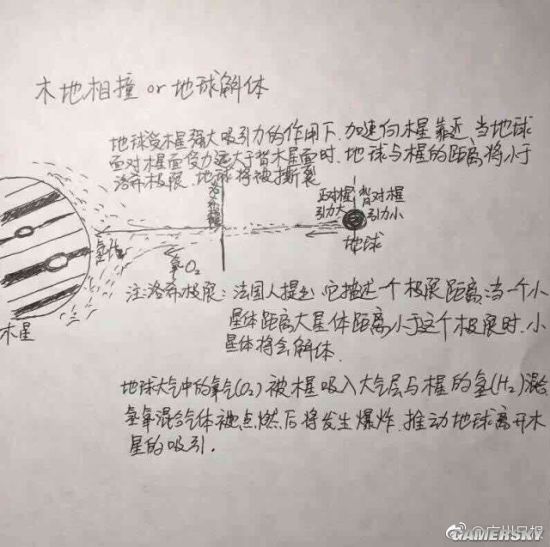 木地相撞 or 地球解体
地球受木星强大吸引力的作用下，加速向木星靠近，当地球
面对木星面受力远大于背木星面时，地球与木星的距离将小于
洛希极限，地球将被撕裂
洛希极限
正对木星 背对木星
引力大 引力小
地球
氢H₂
氧O₂
木星
注：洛希极限：法国人提出，它描述一个极限距离，当一个小
星体距离大星体距离小于这个极限时，小
星体将会解体.
地球大气中的氧气(O₂)被木星吸入大气层与木星的氢(H₂)混合
氢氧混合气体被点燃后将发生爆炸，推动地球离开木
星的吸引.
@广州日报
GAMERSKY